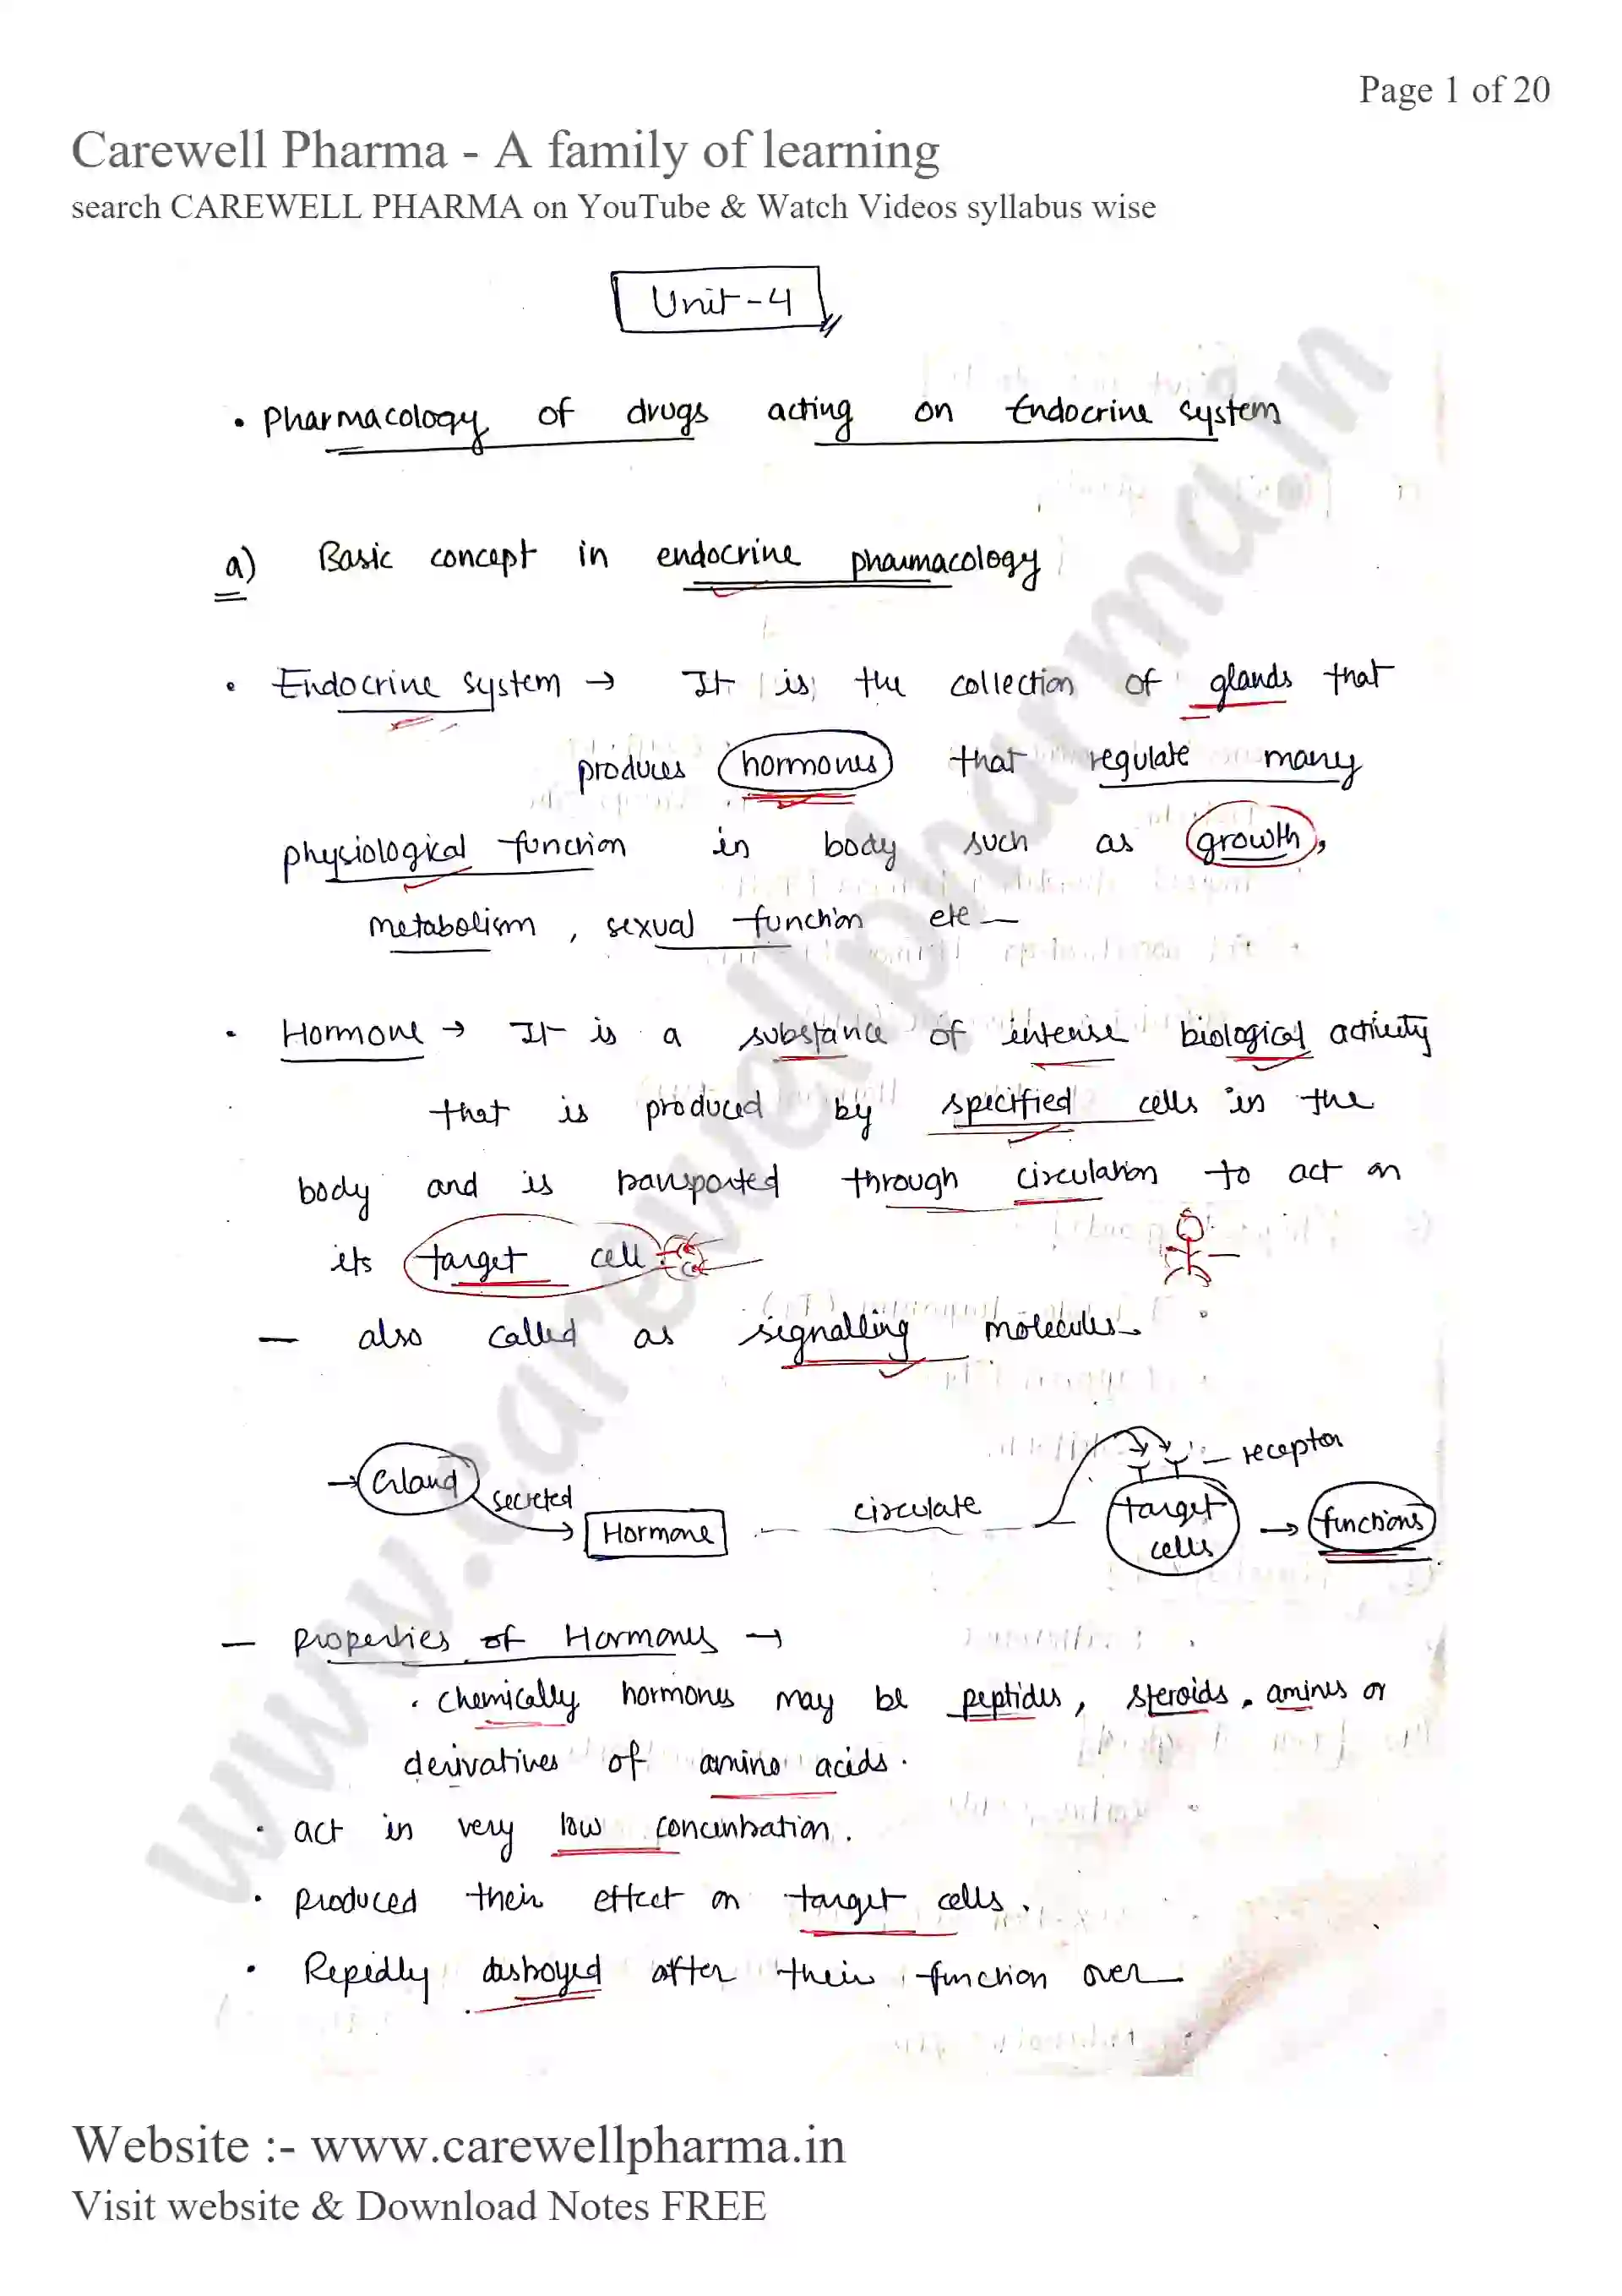 Page 1 of 20
Carewell Pharma - A family of learning
search CAREWELL PHARMA on YouTube & Watch Videos syllabus wise
Unit-4
• Pharmacology of drugs acting on Endocrine system
a) Basic concept in endocrine pharmacology
• Endocrine system → It is the collection of glands that
produces hormones that regulate many
physiological function in body such as growth,
metabolism, sexual function etc —
• Hormone → It is a substance of intense biological activity
that is produced by specified cells in the
body and is transported through circulation to act on
its target cell.
— also called as signalling molecules.
→ Gland secreted → Hormone circulate target cells → functions
receptor
— Properties of Hormones →
• Chemically hormones may be peptides, steroids, amines or
derivatives of amino acids.
• act in very low concentration.
• produced their effect on target cells.
• Repidly destroyed after their function over
www.carewellpharma.in
Website :- www.carewellpharma.in
Visit website & Download Notes FREE